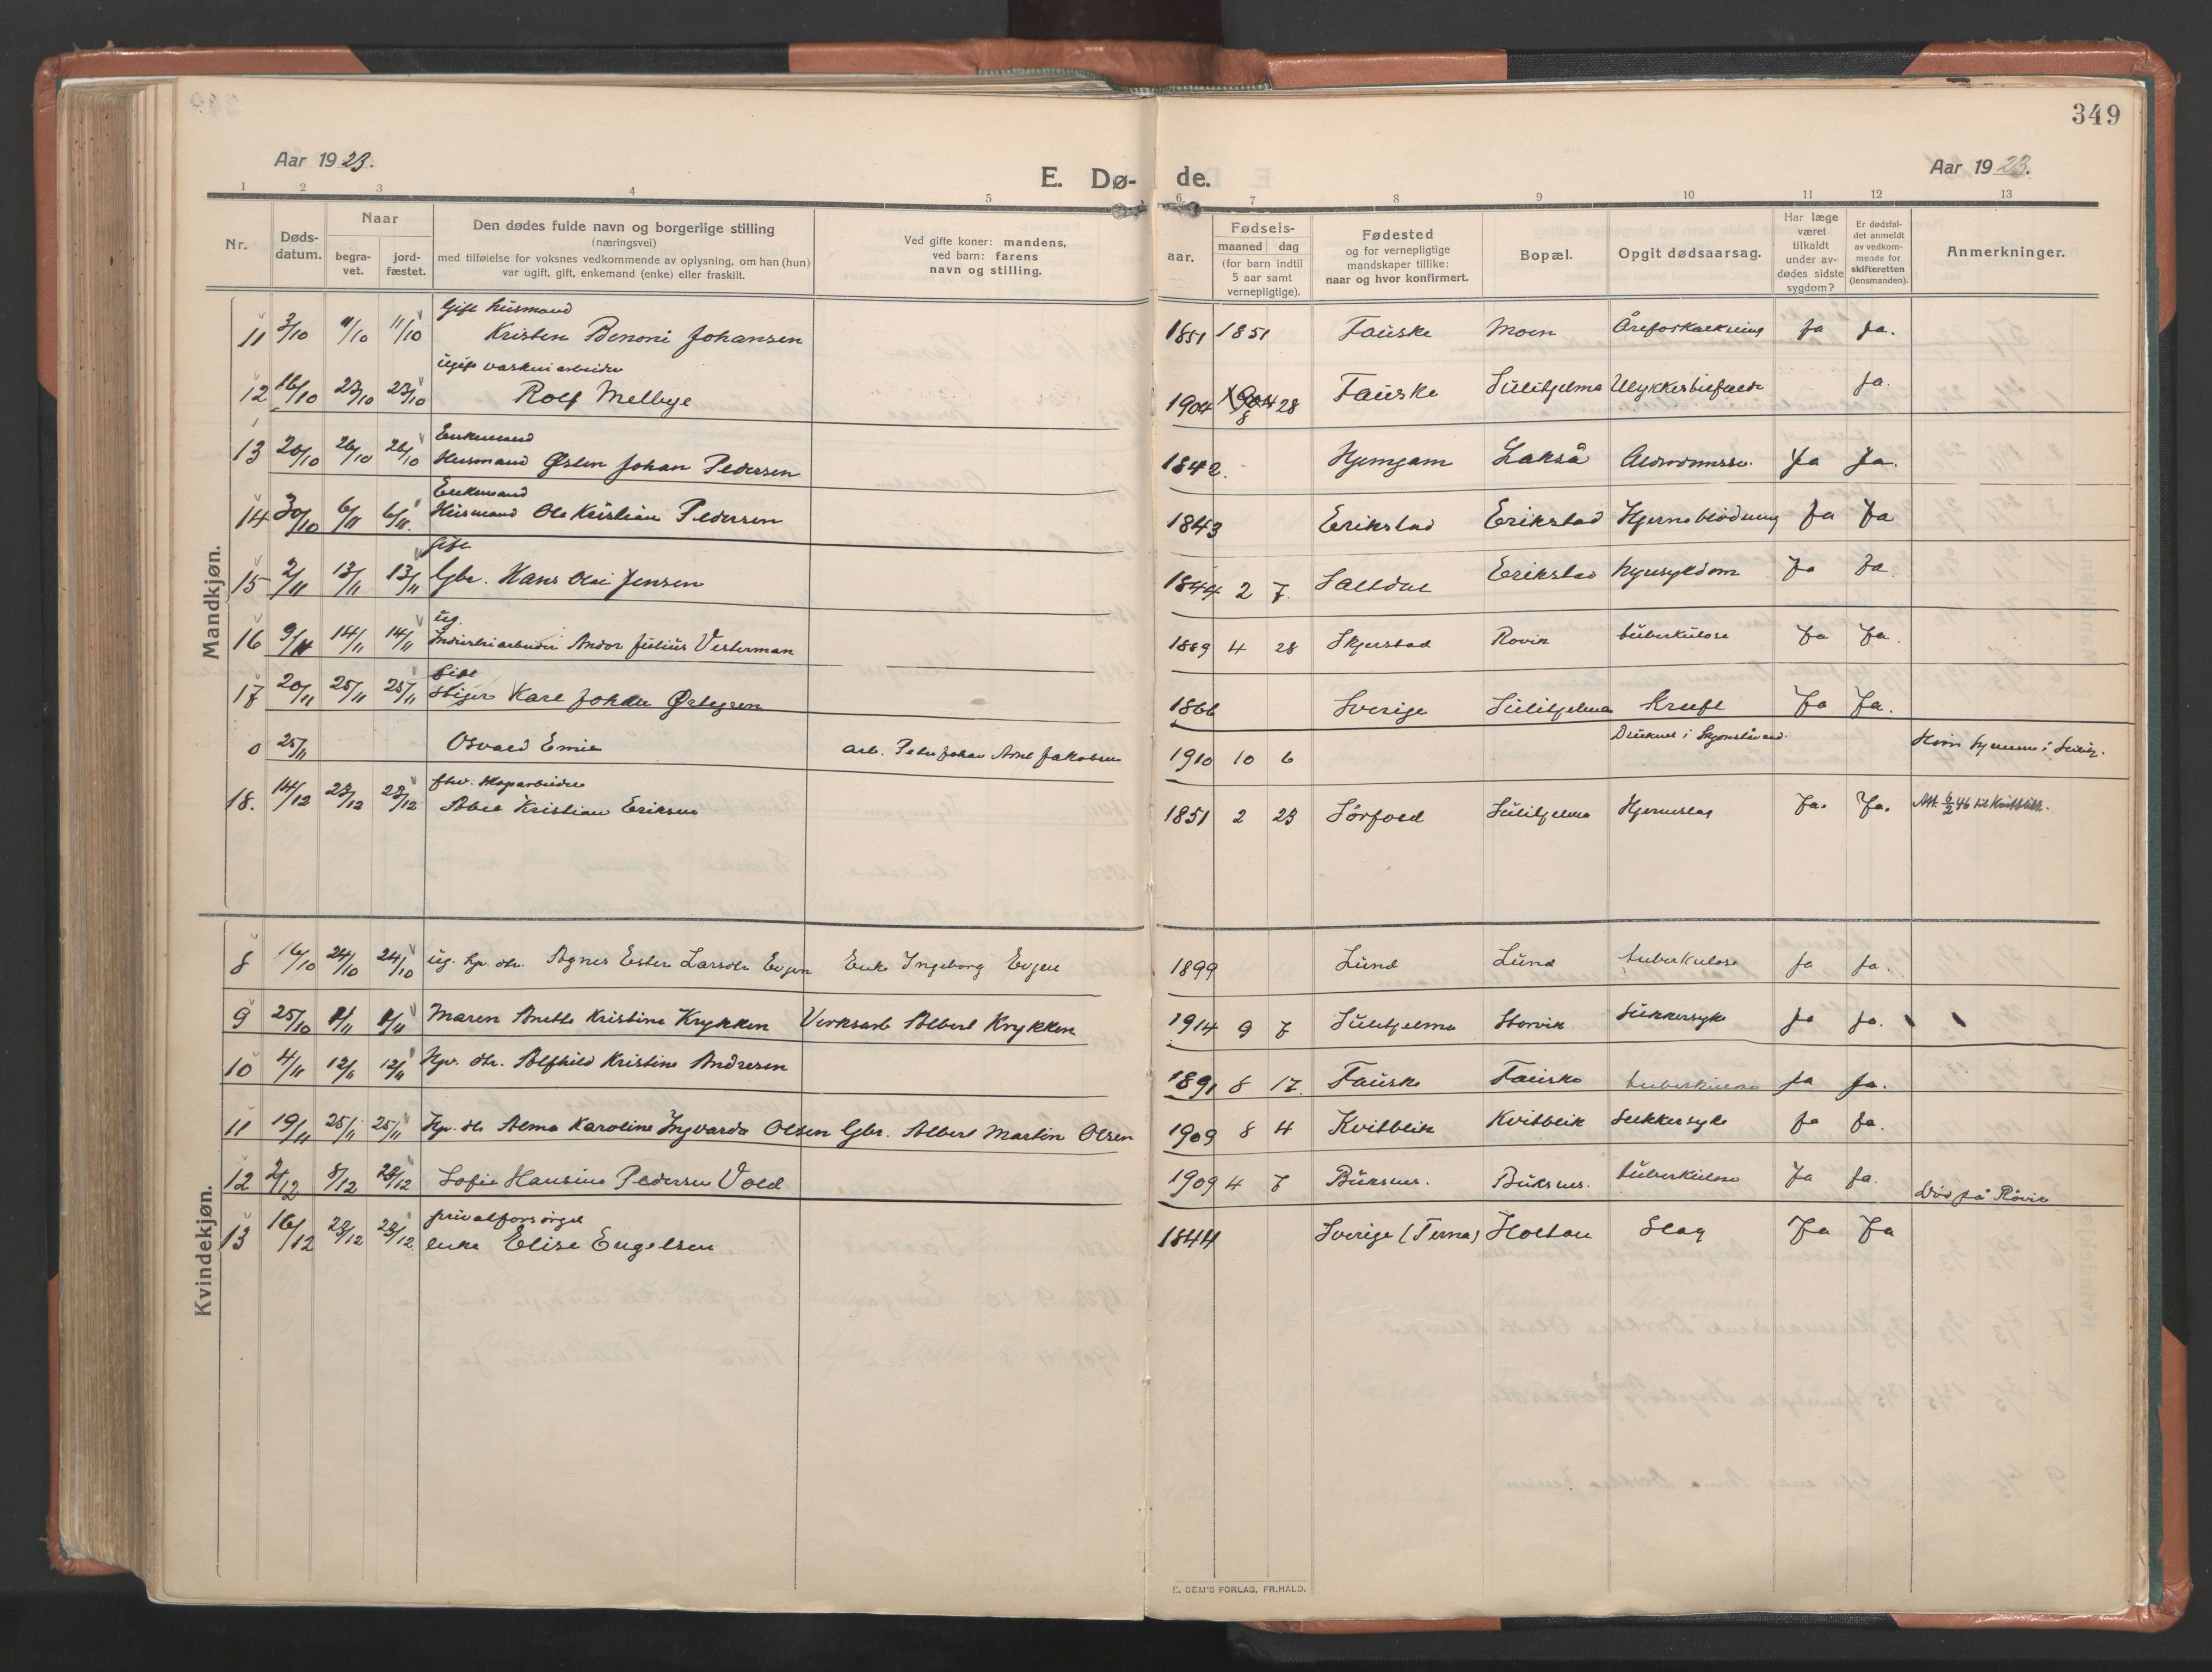 349
Aar 1923.
E. Dø-
de.
Aar 1923.
1 2 3 4 5 6 7 8 9 10 11 12 13
Nr.
Døds-
datum.
Naar
begra-
vet.
jord-
fæstet.
Den dødes fulde navn og borgerlige stilling
(næringsvei)
med tilføielse for voksnes vedkommende av oplysning, om han (hun)
var ugift, gift, enkemand (enke) eller fraskilt.
Ved gifte koner: mandens,
ved barn: farens
navn og stilling.
Fødsels-
aar.
maaned dag
(for barn indtil
5 aar samt
vernepligtige).
Fødested
og for vernepligtige
mandskaper tillike:
naar og hvor konfirmert.
Bopæl.
Opgit dødsaarsag.
Har læge
været
tilkaldt
under av-
dødes sidste
sygdom?
Er dødsfal-
det anmeldt
av vedkom-
mende for
skifteretten
(lensmanden).
Anmerkninger.
Mandkjøn.
Gift husmand
11 3/10 11/10 11/10 Kristen Benoni Johansen 1851 1851 Fauske Moen Åreforkalkning Ja Ja.
ugift
12 16/10 23/10 23/10 Rolf Melbye 1904 28 Fauske Sulitjelma Ulykkestilfælde Ja.
Enkemand
13 20/10 26/10 26/10 Husmand Østen Johan Pedersen 1842. Lakså Ja Ja.
Enkemand
14 30/10 6/11 6/11. Husmand Ole Kristian Pedersen 1843 Erikstad Erikstad Hjerneblødning Ja Ja
Gift
15 2/11 13/11 13/11 Gbr. Hans Olai Jensen 1844 2 7. Saltdal Erikstad Ja Ja
ug.
16 9/11 14/11 14/11 Industriarbeider Andor Julius Vesterman 1889 4 28 Skjerstad Rovik tuberkulose Ja Ja.
Gift
17 20/11 25/11 25/11 Stiger Karl Johan 1866 Sverige Sulitjelma Kræft Ja Ja.
0 25/11 Osvald Emil arb. Peter Johan Jakobsen 1910 10 6 Druknet i
fhv.
18. 14/12 23/12 23/12 Abel Kristian Eriksen 1851 2 23 Sørfold Sulitjelma Hjerneslag Ja. Ja. Att. 6/2 46 til Kvitblik.
Kvindekjøn.
8 16/10 24/10 24/10 ug. gp. dtr. Agnes Ester Larsdtr Evjen Enke Ingeborg Evjen 1899 Lund Lund tuberkulose Ja Ja.
9 25/10 Maren Anette Kristine Krykken Verksarb Albert Krykken 1914 9 7 Sulitjelma Storvik Sukkersyke Ja Ja.
10 4/11 12/11 12/11 Alfhild Kristine Andresen 1891 8 17. Fauske Fauske tuberkulose Ja Ja.
11 19/11 25/11 25/11 Alma Karoline Ingvarda Olsen Gbr. Albert Martin Olsen 1909 8 4 Kvitblik Kvitblik Sukkersyke Ja Ja.
12 2/12 8/12 Sofie Hansine Pedersen Vold 1909 4 7 Buksnes. Buksnes. tuberkulose Ja Ja. Død på Røvik
privatforsørget
13 16/12 23/12 23/12. enke Elise Engelsen 1844 Sverige (Terna) Holtan Slag Ja Ja
E. SEM'S FORLAG, FR.HALD.